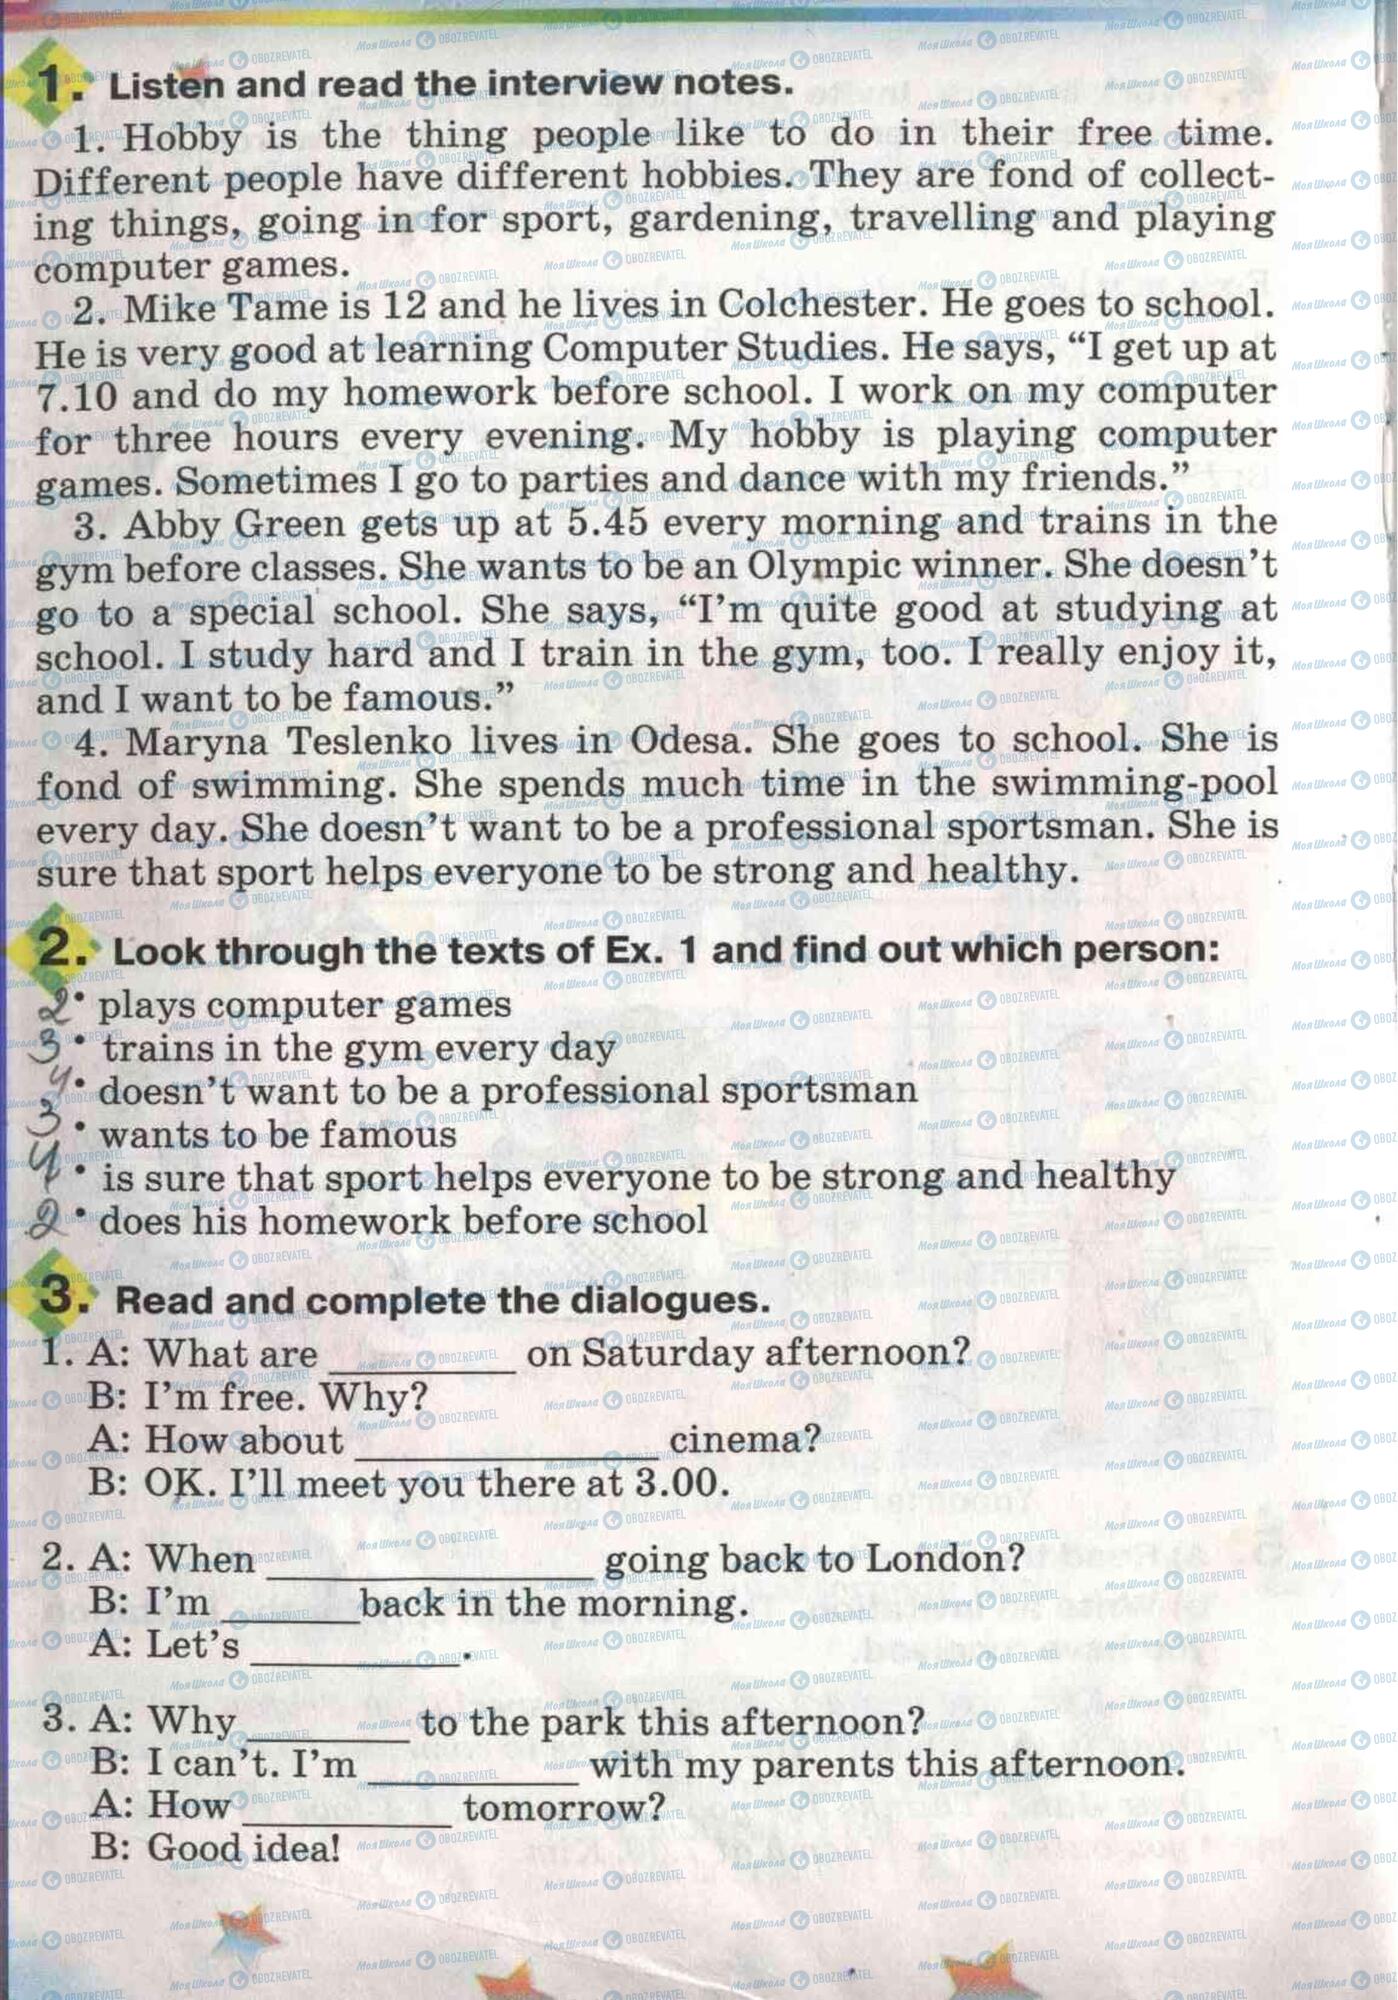 1. Listen and read the interview notes.
1. Hobby is the thing people like to do in their free time.
Different people have different hobbies. They are fond of collect-
ing things, going in for sport, gardening, travelling and playing
computer games.
2. Mike Tame is 12 and he lives in Colchester. He goes to school.
He is very good at learning Computer Studies. He says, “I get up at
7.10 and do my homework before school. I work on my computer
for three hours every evening. My hobby is playing computer
games. Sometimes I go to parties and dance with my friends.”
3. Abby Green gets up at 5.45 every morning and trains in the
gym before classes. She wants to be an Olympic winner. She doesn’t
go to a special school. She says, “I’m quite good at studying at
school. I study hard and I train in the gym, too. I really enjoy it,
and I want to be famous.”
4. Maryna Teslenko lives in Odesa. She goes to school. She is
fond of swimming. She spends much time in the swimming-pool
every day. She doesn’t want to be a professional sportsman. She is
sure that sport helps everyone to be strong and healthy.
2. Look through the texts of Ex. 1 and find out which person:
2 • plays computer games
3 • trains in the gym every day
4 • doesn’t want to be a professional sportsman
3 • wants to be famous
4 • is sure that sport helps everyone to be strong and healthy
2 • does his homework before school
3. Read and complete the dialogues.
1. A: What are ________ on Saturday afternoon?
B: I’m free. Why?
A: How about ________ cinema?
B: OK. I’ll meet you there at 3.00.
2. A: When ________ going back to London?
B: I’m ________ back in the morning.
A: Let’s ________.
3. A: Why ________ to the park this afternoon?
B: I can’t. I’m ________ with my parents this afternoon.
A: How ________ tomorrow?
B: Good idea!
Моя Школа OBOZREVATEL